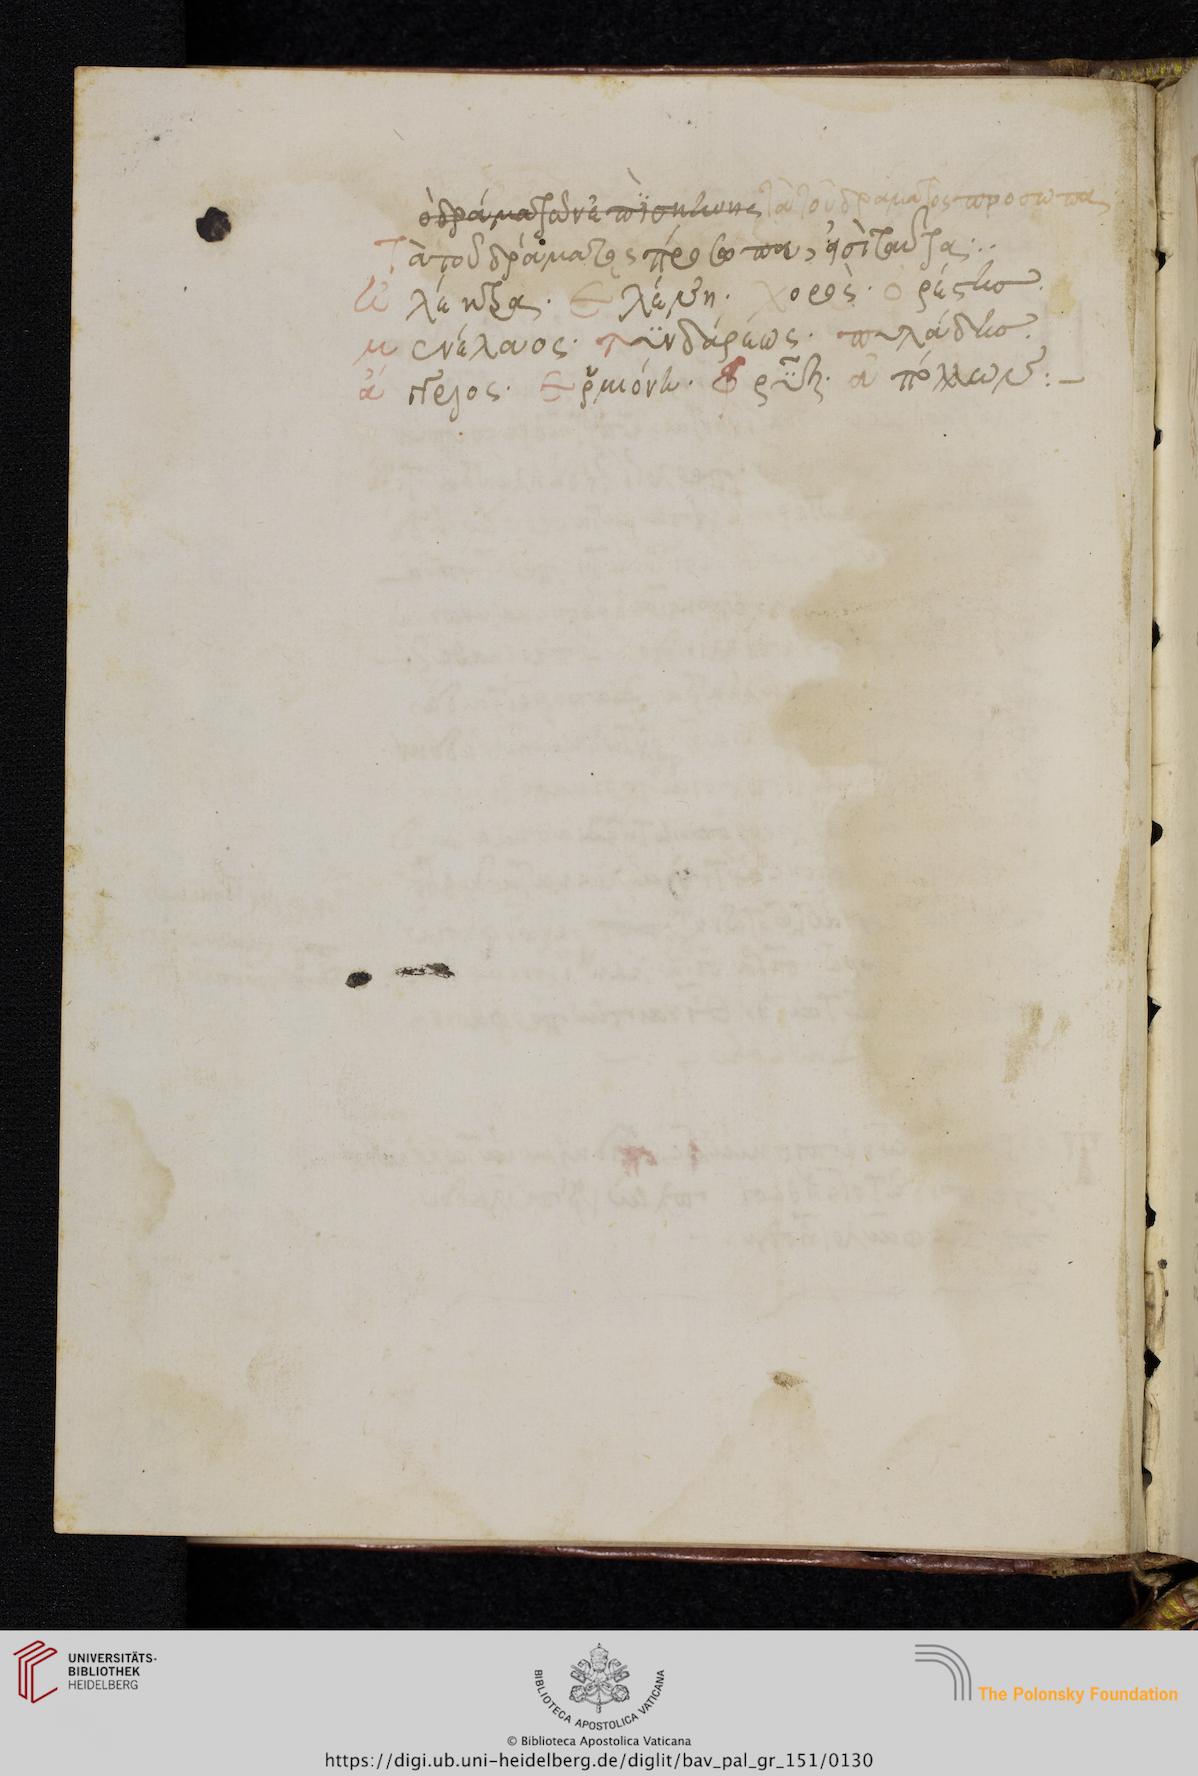 τὰ τοῦ δράματος προσωπα
Τὰ τοῦ δράματος πρόσωπα, εἰσὶ ταῦτα:
ἠλέκτρα· Ἑλένη· χορὸς· ὀρέστης·
μενέλαος· τυϊνδάρεως· πυλάδης·
ἄγγελος· Ἑρμιόνη· Φρὺξ· ἀπόλλων:—
UNIVERSITÄTS-
BIBLIOTHEK
HEIDELBERG
BIBLIOTECA APOSTOLICA VATICANA
The Polonsky Foundation
© Biblioteca Apostolica Vaticana
https://digi.ub.uni-heidelberg.de/diglit/bav_pal_gr_151/0130